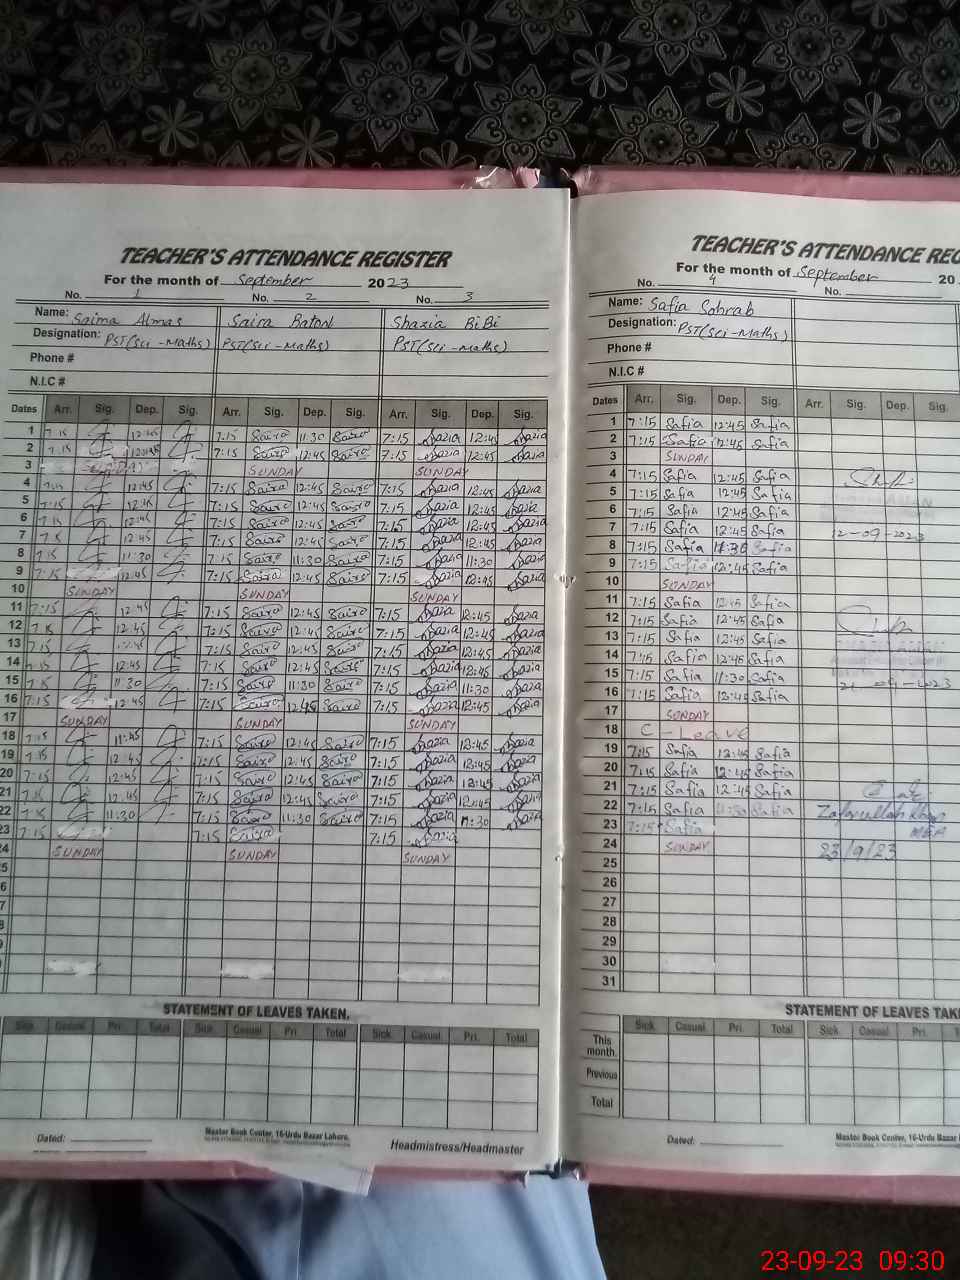 TEACHER'S ATTENDANCE REGISTER
For the month of September 2023
No. 1 No. 2 No. 3
Name: Saima Almas Saira Baton Shazia BiBi
Designation: PST(Sci-Maths) PST(Sci-Maths) PST(Sci-Maths)
Phone #
N.I.C #
Dates Arr. Sig. Dep. Sig. Arr. Sig. Dep. Sig. Arr. Sig. Dep. Sig.
1 7:15 12:45 7:15 Saira 11:30 Saira 7:15 Shazia 12:45 Shazia
2 7:15 7:15 Saira 12:45 Saira 7:15 Shazia 12:45 Shazia
3 SUNDAY SUNDAY SUNDAY
4 7:15 12:45 7:15 Saira 12:45 Saira 7:15 Shazia 12:45 Shazia
5 7:15 12:45 7:15 Saira 12:45 Saira 7:15 Shazia 12:45 Shazia
6 7:15 12:45 7:15 Saira 12:45 Saira 7:15 Shazia 12:45 Shazia
7 7:15 12:45 7:15 Saira 12:45 Saira 7:15 Shazia 12:45 Shazia
8 7:15 11:30 7:15 Saira 11:30 Saira 7:15 Shazia 11:30 Shazia
9 7:15 12:45 7:15 Saira 12:45 Saira 7:15 Shazia 12:45 Shazia
10 SUNDAY SUNDAY SUNDAY
11 7:15 12:45 7:15 Saira 12:45 Saira 7:15 Shazia 12:45 Shazia
12 7:15 12:45 7:15 Saira 12:45 Saira 7:15 Shazia 12:45 Shazia
13 7:15 12:45 7:15 Saira 12:45 Saira 7:15 Shazia 12:45 Shazia
14 7:15 12:45 7:15 Saira 12:45 Saira 7:15 Shazia 12:45 Shazia
15 7:15 11:30 7:15 Saira 11:30 Saira 7:15 Shazia 11:30 Shazia
16 7:15 12:45 7:15 Saira 12:45 Saira 7:15 Shazia 12:45 Shazia
17 SUNDAY SUNDAY SUNDAY
18 7:15 11:45 7:15 Saira 12:45 Saira 7:15 Shazia 12:45 Shazia
19 7:15 12:45 7:15 Saira 12:45 Saira 7:15 Shazia 12:45 Shazia
20 7:15 12:45 7:15 Saira 12:45 Saira 7:15 Shazia 12:45 Shazia
21 7:15 12:45 7:15 Saira 12:45 Saira 7:15 Shazia 12:45 Shazia
22 7:15 11:30 7:15 Saira 11:30 Saira 7:15 Shazia 11:30 Shazia
23 7:15 7:15 Saira 7:15 Shazia
24 SUNDAY SUNDAY SUNDAY
STATEMENT OF LEAVES TAKEN.
Sick. Casual Pri. Total Sick. Casual Pri. Total Sick. Casual Pri. Total
Dated:
Master Book Center, 16-Urdu Bazar Lahore.
Headmistress/Headmaster
TEACHER'S ATTENDANCE REG
For the month of September 20
No. 4 No.
Name: Safia Sohrab
Designation: PST(Sci-Maths)
Phone #
N.I.C #
Dates Arr. Sig. Dep. Sig. Arr. Sig. Dep. Sig.
1 7:15 Safia 12:45 Safia
2 7:15 Safia 12:45 Safia
3 SUNDAY
4 7:15 Safia 12:45 Safia
5 7:15 Safia 12:45 Safia
6 7:15 Safia 12:45 Safia
7 7:15 Safia 12:45 Safia 12-09-2023
8 7:15 Safia 11:30 Safia
9 7:15 Safia 12:45 Safia
10 SUNDAY
11 7:15 Safia 12:45 Safia
12 7:15 Safia 12:45 Safia
13 7:15 Safia 12:45 Safia
14 7:15 Safia 12:45 Safia
15 7:15 Safia 11:30 Safia 21-09-2023
16 7:15 Safia 12:45 Safia
17 SUNDAY
18 C - Leave
19 7:15 Safia 12:45 Safia
20 7:15 Safia 12:45 Safia
21 7:15 Safia 12:45 Safia
22 7:15 Safia 11:30 Safia Zafarullah Khan
23 7:15 Safia MEA
24 SUNDAY 23/9/23
25
26
27
28
29
30
31
STATEMENT OF LEAVES TAK
Sick. Casual Pri. Total Sick. Casual Pri.
This month.
Previous
Total
Dated:
Master Book Center, 16-Urdu Bazar
23-09-23 09:30